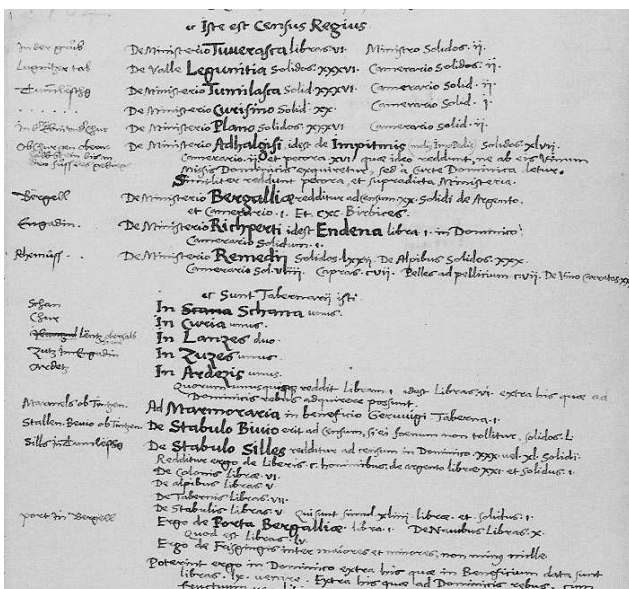 Iste est Census Regius.
In der grůb De Ministerio Tuverasca libras vi. Ministro Solidos. ij.
Lugnitzer tal De Valle Legunitia Solidos. xxxvi. Camerario Solidos. ij.
Tumläschg De Ministerio Tumilasca Solid. xxxvi. Camerario Solid. ij.
. . . . . . . De Ministerio Curisino Solid. xx. Camerario Solid. i.
De Ministerio Plano Solidos xxxvi Camerario Solid. ij.
De Ministerio Adhalgisi, idest de Impitinis Solidos xlvii.
Camerario. ij. et pecora xvi quæ ideo reddunt, ne ab eis Vinum
Missis Dominicis exquiretur, sed à Curte Dominica detur.
Similiter reddunt pecora, et supradicta Ministeria.
Bergell De Ministerio Bergalliæ redditur ad censum xx. Solidi de Argento.
et Camerario. i. Et cxc Birbices.
Engadin. De Ministerio Richperti idest Endena libra i. in Dominico
Camerario Solidum. i.
Rhemüss. De Ministerio Remedii Solidos lxxii. De Alpibus Solidos. xxx.
Camerario Sol. viiij. Capras. cvii. Pelles ad pellitium cvii. De Vino Carratas xx
Sunt Tabernarii isti.
Schan In Scana Schana unus.
Chur In Curia unus.
Lentz In Lanzes duo.
Zutz im Engadin In Zuzes unus.
Ardetz In Ardezis unus.
Quorum unusquisque reddit Libram i. idest Libras vi. extra his quæ ad
Dominicis rebus adquirere possunt.
Marmels ob Tintzen. Ad Marmoraria in beneficio Taberna. i.
Stallen. Bevio ob Tintzen De Stabulo Bivio erit ad censum, si ei foenum non tollitur, solidos L
Sills in Tumläschg De Stabulo Silles redditur ad censum in Dominico. xxx. vel. xl. Solidi.
Redditur ergo de Liberis. c. hominibus, de argento libræ xxi et Solidus. i.
De Colonis Libræ. vi.
De alpibus libras v.
De Tabernis libras. vii.
De Stabulis Libras. v Qui sunt simul. xliiij. libræ. et Solidus. i.
port in Bergell Ergo de Porta Bergalliæ. libra. i. De Navibus Libras. x.
Quod est Libras. lv.
Ergo de Frisgingis inter maiores et minores, non minus mille
Poterint ergo in Dominico extra his quæ in Beneficium data sunt
libras. lx. venire. Extra his quæ ad Dominicis rebus, cum